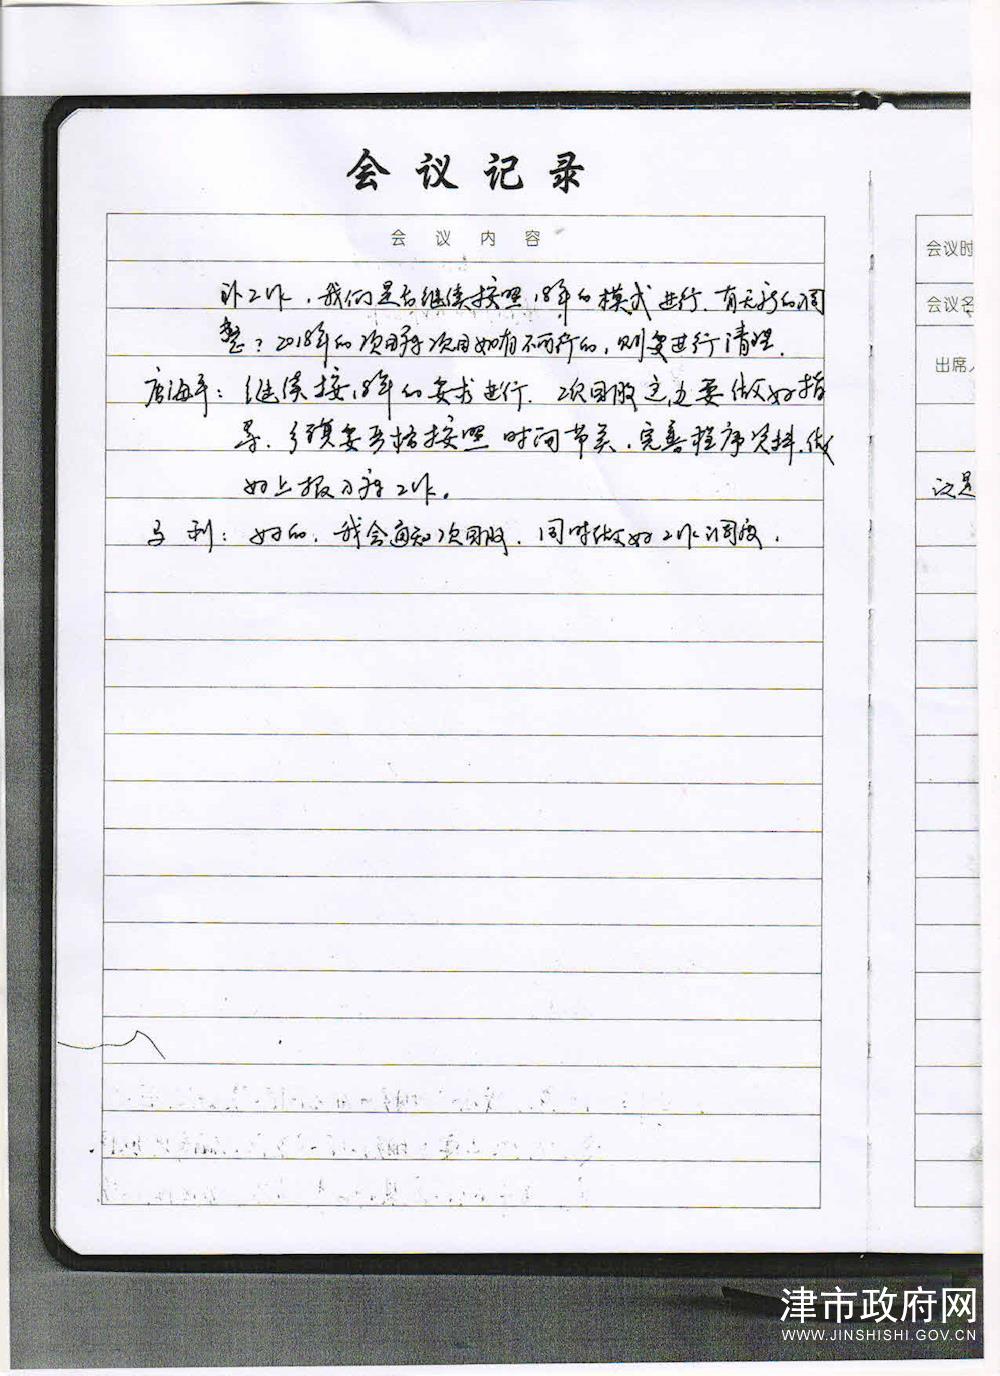 会议记录
会议内容
补工作，我们是否继续按照18年的模式进行，有无新的调
整？2018年的项目库项目如有不可行的，则要进行清理。
唐海平：继续按18年的要求进行。项目股这边要做好指
导，乡镇要严格按照时间节点，完善程序资料，做
好上报入库工作。
马利：好的，我会通知项目股，同时做好工作调度。
会议时
会议名
出席人
议是
津市政府网
WWW.JINSHISHI.GOV.CN